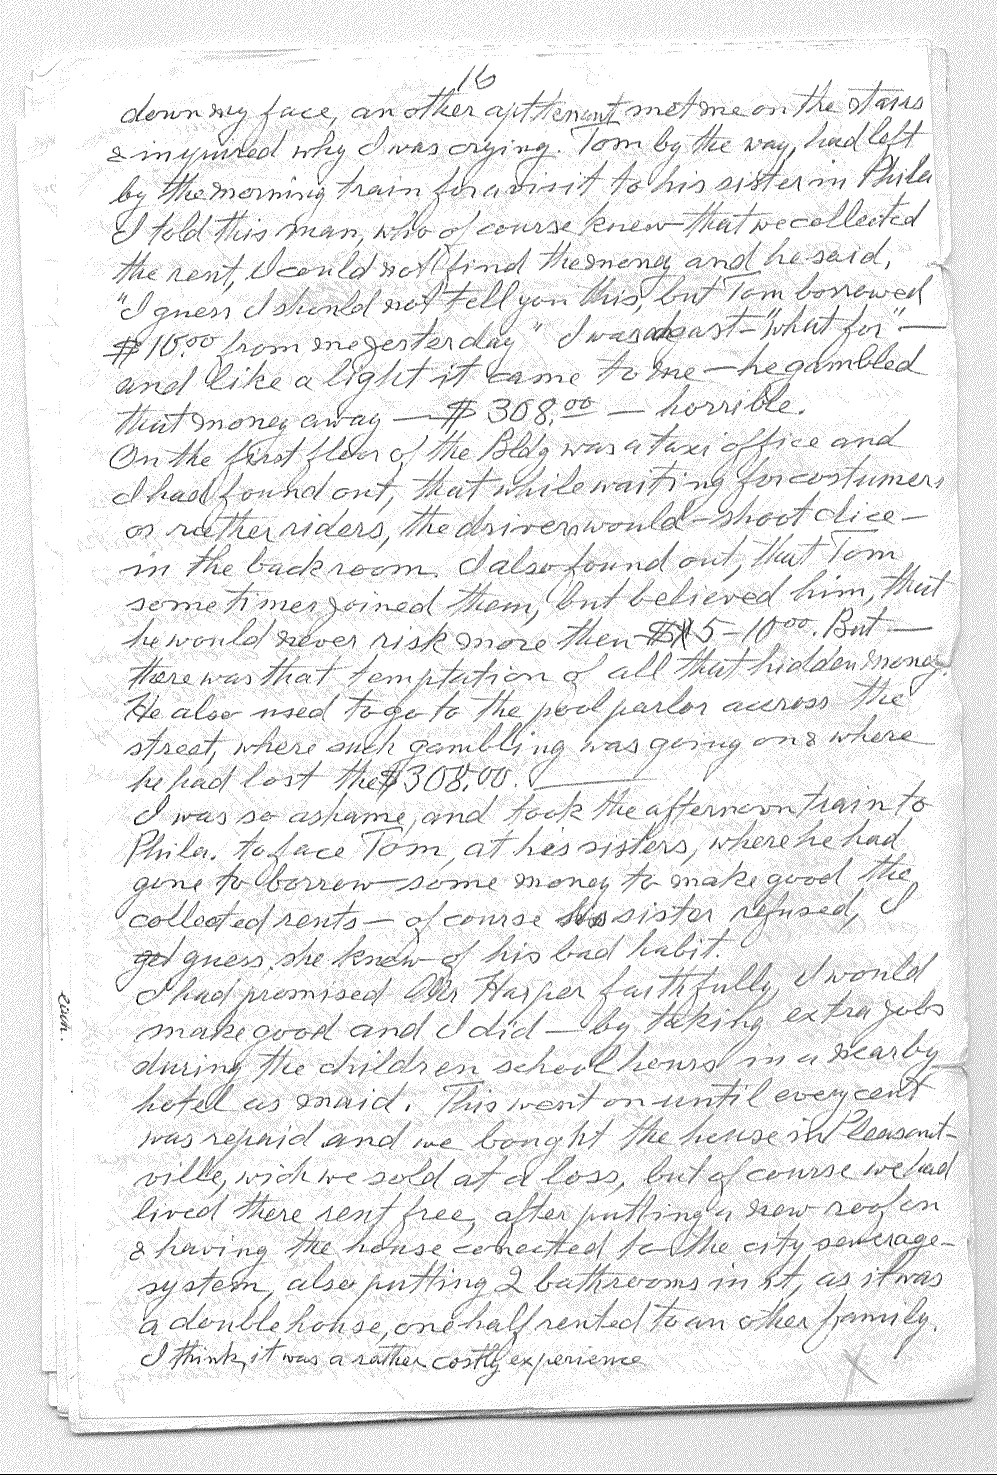 16
down my face, an other apt tenant met me on the stairs
& inquired why I was crying. Tom by the way, had left
by the morning train for a visit to his sister in Phila
I told this man, who of course knew that we collected
the rent, I could not find the money and he said,
"I guess I should not tell you this, but Tom borrowed
$10.00 from me yesterday" I was - "what for" —
and like a light it came to me — he gambled
that money away — $308.00 — horrible.
On the first floor of the Bldg was a taxi office and
I had found out, that while waiting for costumers
or rather riders, the drivers would - shoot dice -
in the backroom. I also found out, that Tom
sometimes joined them, but believed him, that
he would never risk more then $5-10.00. But —
there was that temptation of all that hidden money.
He also used to go to the pool parlor accross the
street, where such gambling was going on & where
he had lost the $308.00. —
I was so ashame, and took the afternoon train to
Phila. to face Tom, at his sisters, where he had
gone to borrow some money to make good the
collected rents — of course his sister refused, I
guess, she knew of his bad habit.
I had promised Mr Harper faithfully, I would
make good and I did — by taking extra jobs
during the children school hours in a nearby
hotel as maid. This went on until every cent
was repaid and we bought the house in Pleasant-
ville, wich we sold at a loss, but of course we had
lived there rent free, after putting a new roof on
& having the house conected to the city sewerage-
system, also putting 2 bathrooms in it, as it was
a double house, one half rented to an other family.
I think, it was a rather costly experience